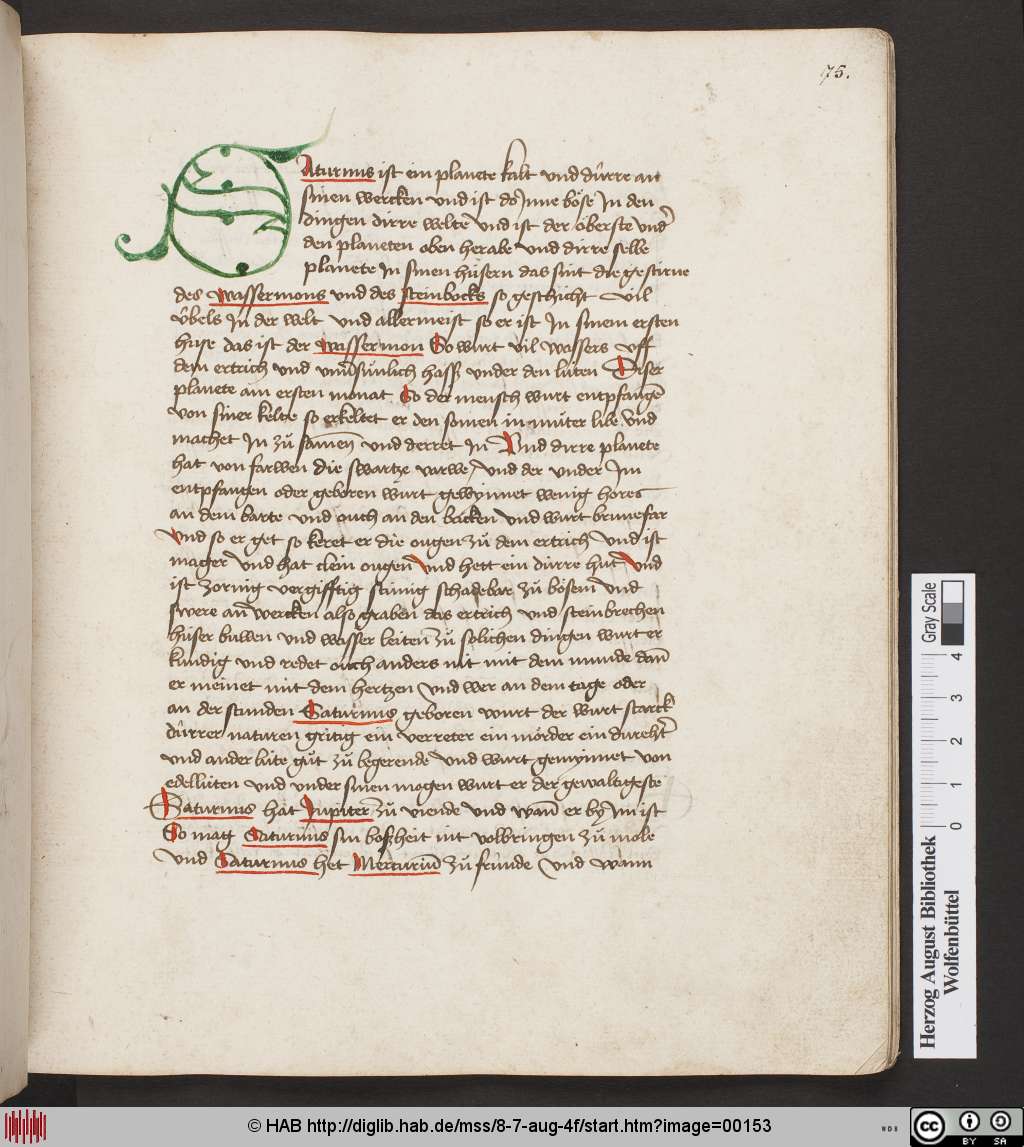 75.
SAturnus ist ein planete kalt und dürre an
sinen wercken und ist do Inne böse In den
dingen dirre welte und ist der oberste und'
den planeten oben herabe und dirre selbe
planete In sinen hüsern das sint die gestirne
des wassermons und des steinbocks so geschicht vil
übels In der welt und allermeist so er ist In sinem ersten
huse das ist der wassermon So wurt vil wassers uff
dem ertrich und hass under den lüten Diser
planete am ersten monat So der mensch wurt entpfangē
von siner kelte so erkeltet er den somen in müter libe und
machet In zů samen und derret In Und dirre planete
hat von farwen die swartze varwe / und der under Im
entpfangen oder geboren wurt gewynnet wenig hores
an dem barte und ouch an den backen und wurt brunefar
Und so er get so keret er die ougen zů dem ertrich und ist
mager und hat clein ougen und hett ein dürre hut Und
ist zornig vergifftig schadebar zů bösem und
swere an wercken also graben das ertrich und steinbrechen
hüser buwen und wasser leiten zů solichen dingen wurt er
kundig und redet ouch anders nit mit dem munde dañ
er meinet mit dem hertzen und wer an dem tage oder
an der stunden Saturnus geboren wurt der wurt starck
dürrer naturen gritig ein verreter ein mörder ein
und ander lüte gůt zů begerende und wurt gemynnet von
edellüten und under sinen mogen wurt er der gewaltigeste
Saturnus hat Jupiter zů viende und wañ er by Im ist
So mag Saturnus sin boßheit nit volbringen zů mole
und Saturnus het Mercuriū zů fründe und wann
Gray Scale
4
3
2
1
0
Herzog August Bibliothek
Wolfenbüttel
© HAB http://diglib.hab.de/mss/8-7-aug-4f/start.htm?image=00153
WDB
cc BY SA